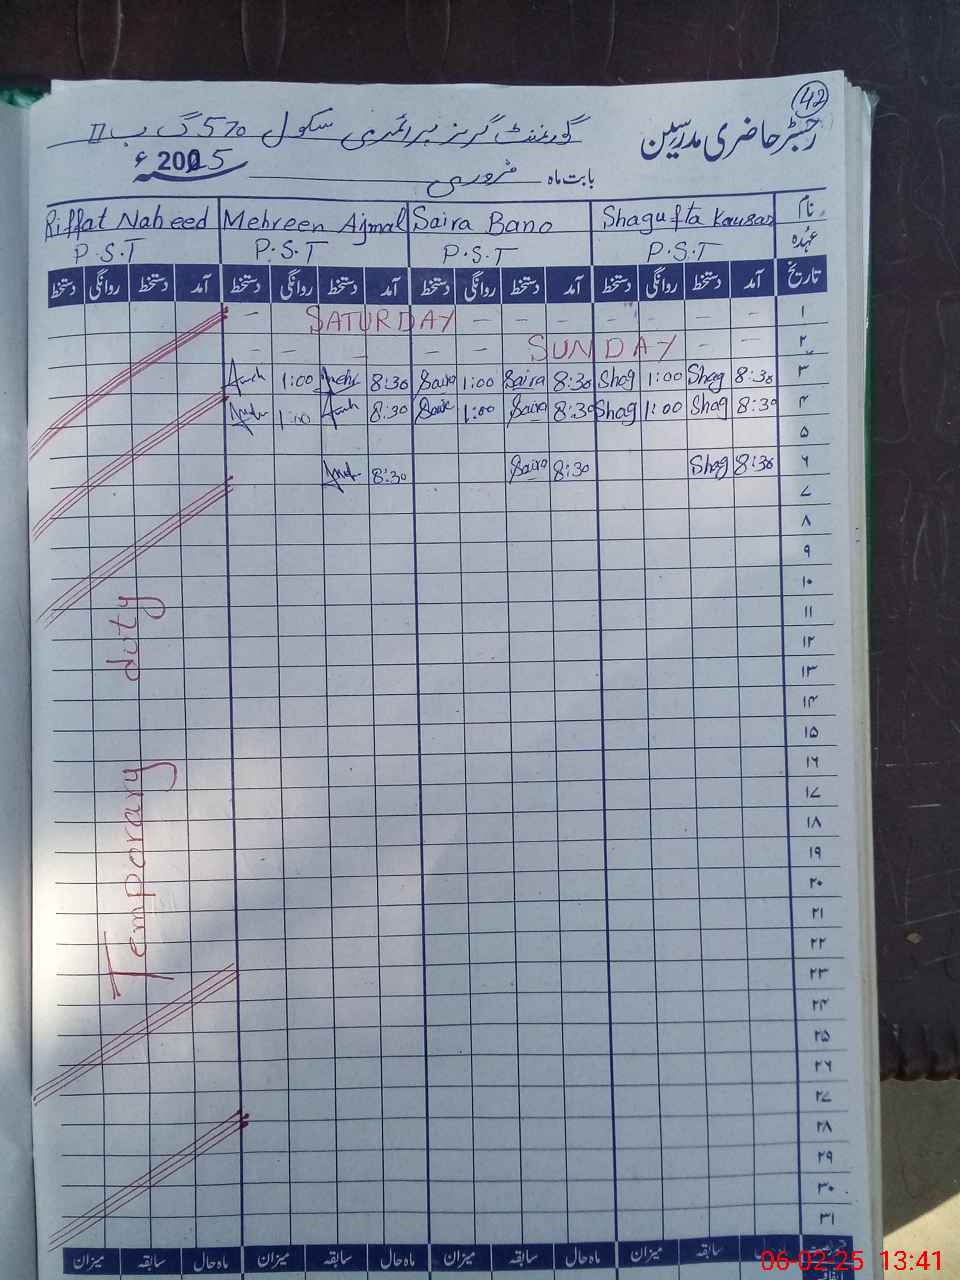 42
رجسٹر حاضری مدرسین
گورنمنٹ گرلز پرائمری سکول 570 گ ب II
بابت ماہ فروری 2025 ء
نام Shagufta Kausar Saira Bano Mehreen Ajmal Riffat Naheed
عہدہ P.S.T P.S.T P.S.T P.S.T
تاریخ آمد دستخط روانگی دستخط آمد دستخط روانگی دستخط آمد دستخط روانگی دستخط آمد دستخط روانگی دستخط
۱ SATURDAY
۲ SUNDAY
۳ 8:30 Shag 1:00 Shag 8:30 Saira 1:00 Saira 8:30 1:00
۴ 8:30 Shag 1:00 Shag 8:30 Saira 1:00 8:30 1:00
۵
۶ 8:30 Shag 8:30 Saira 8:30
۷
۸
۹
۱۰
۱۱
۱۲
۱۳
۱۴
۱۵
۱۶
۱۷
۱۸
۱۹
۲۰
۲۱
۲۲
۲۳
۲۴
۲۵
۲۶
۲۷
۲۸
۲۹
۳۰
۳۱
Temporary duty
سابقہ میزان ماہ حال سابقہ میزان ماہ حال سابقہ میزان ماہ حال سابقہ میزان
06-02-25 13:41